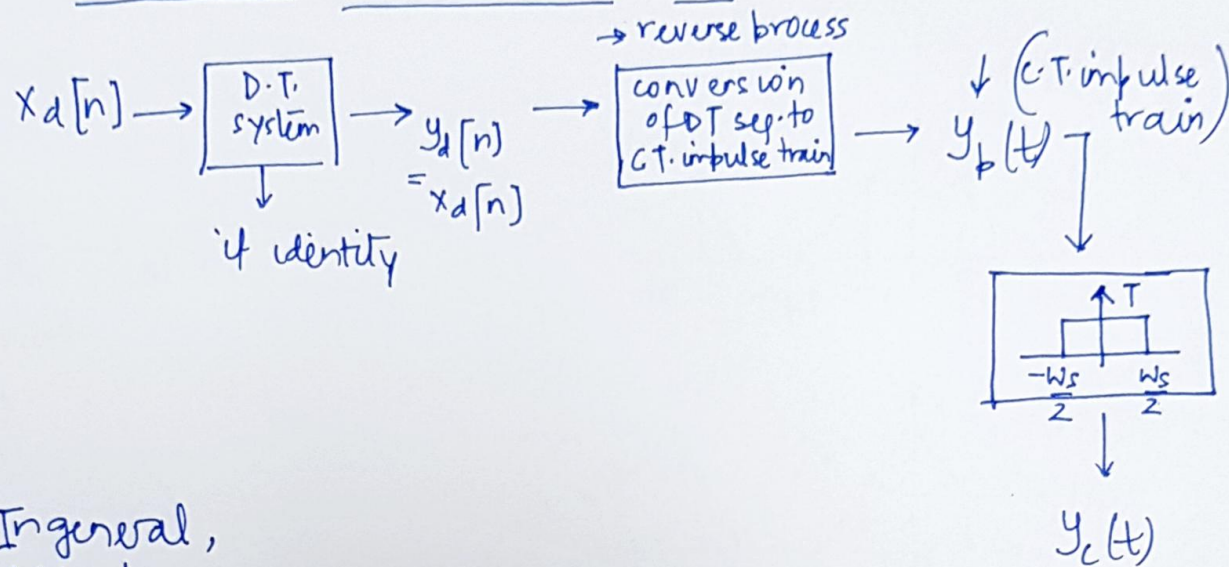 → reverse process
x_d[n] → D.T. system → y_d[n] = x_d[n] → conversion of DT seq. to C.T. impulse train → y_p(t)
↓ (C.T. impulse train)
↓
if identity
T
-ws/2 ws/2
y_c(t)
In general,